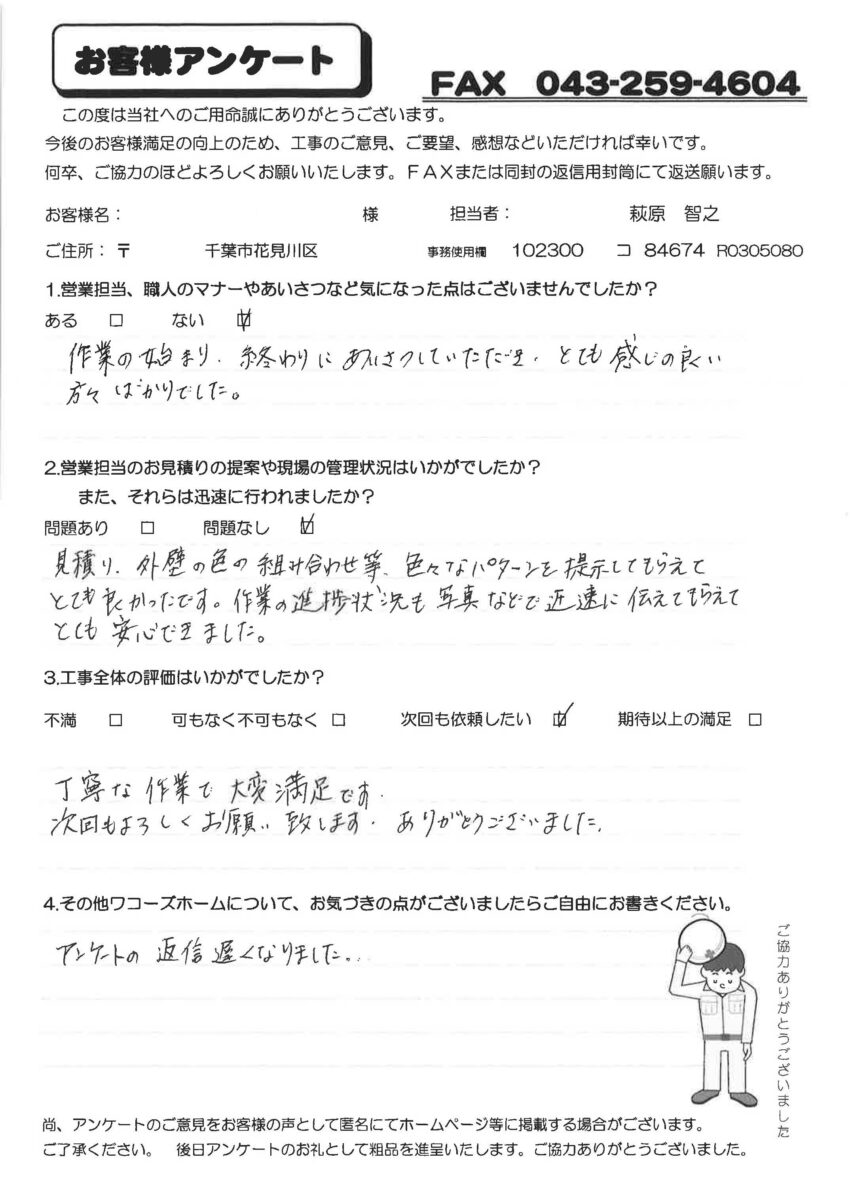 お客様アンケート
FAX 043-259-4604
この度は当社へのご用命誠にありがとうございます。
今後のお客様満足の向上のため、工事のご意見、ご要望、感想などいただければ幸いです。
何卒、ご協力のほどよろしくお願いいたします。FAXまたは同封の返信用封筒にて返送願います。
お客様名： 様 担当者： 萩原 智之
ご住所：〒 千葉市花見川区 事務使用欄 102300 コ 84674 R0305080
1.営業担当、職人のマナーやあいさつなど気になった点はございませんでしたか？
ある □ ない ☑
作業の始まり、終わりにあいさつしていただき、とても感じの良い
方々ばかりでした。
2.営業担当のお見積りの提案や現場の管理状況はいかがでしたか？
また、それらは迅速に行われましたか？
問題あり □ 問題なし ☑
見積り、外壁の色の組み合わせ等、色々なパターンを提示してもらえて
とても良かったです。作業の進捗状況も写真などで迅速に伝えてもらえて
とても安心できました。
3.工事全体の評価はいかがでしたか？
不満 □ 可もなく不可もなく □ 次回も依頼したい ☑ 期待以上の満足 □
丁寧な作業で大変満足です。
次回もよろしくお願い致します。ありがとうございました。
4.その他ワコーズホームについて、お気づきの点がございましたらご自由にお書きください。
アンケートの返信遅くなりました。..
ご協力ありがとうございました
尚、アンケートのご意見をお客様の声として匿名にてホームページ等に掲載する場合がございます。
ご了承ください。 後日アンケートのお礼として粗品を進呈いたします。ご協力ありがとうございました。